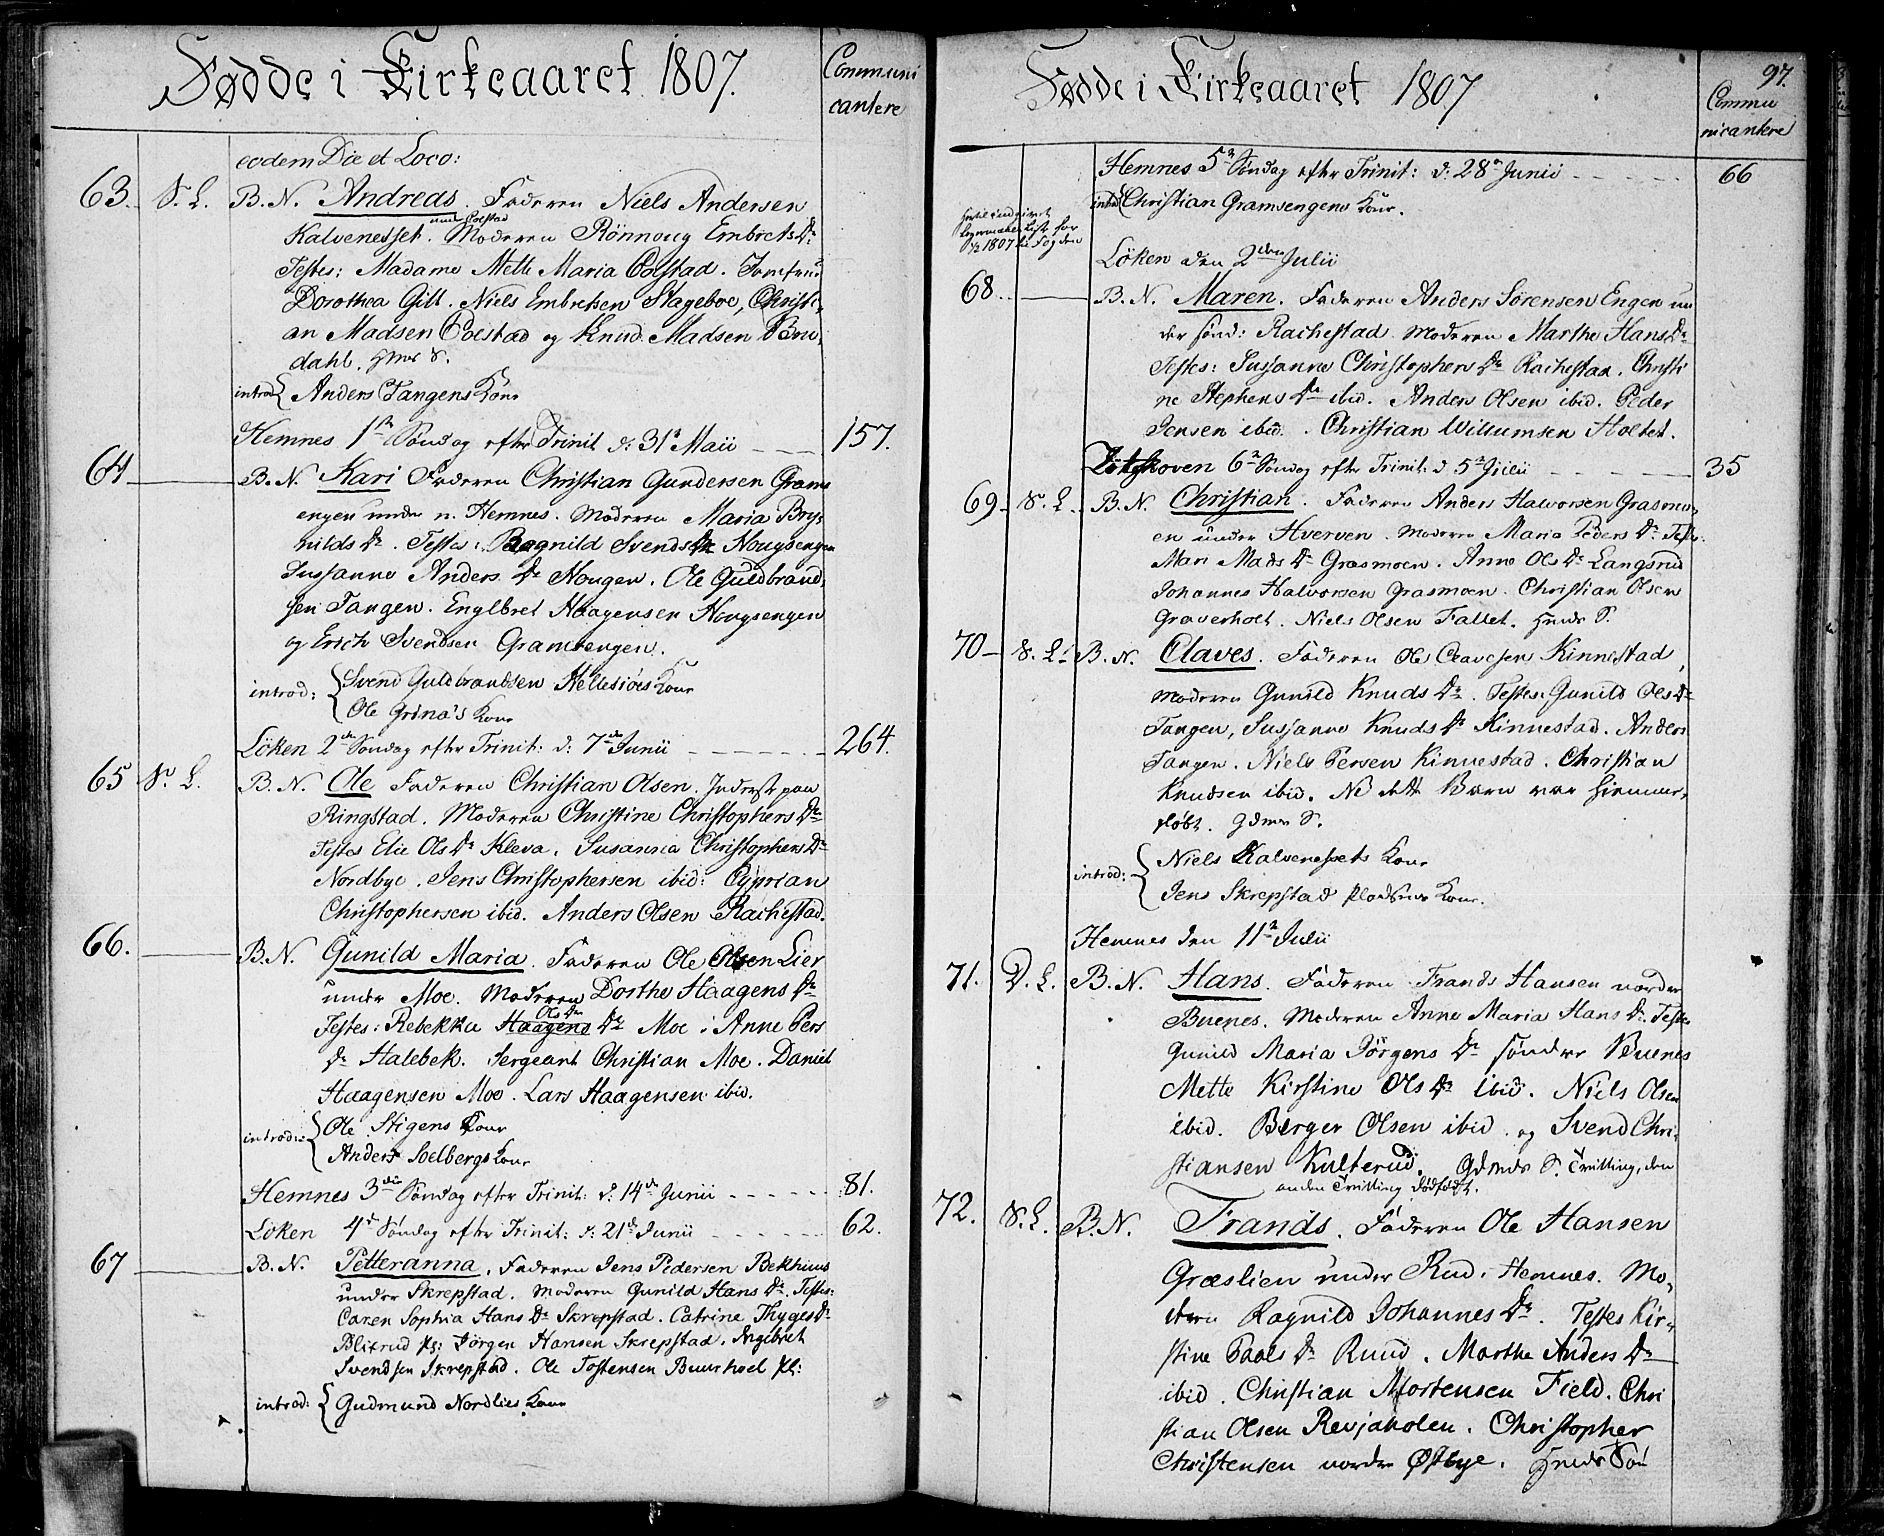 Fødde i Kirkeaaret 1807.
Communi
cantere
eodem Die et Loco:
63. S. L. B. N. Andreas. Faderen Niels Andersen
under Colstad
Kalvenesset. Moderen Rönnoug Embrets Dr
Testes: Madame Mette Maria Colstad. Jomfrue
Dorothea Gill. Niels Embretsen Stageboe, Christi-
an Madsen Colstad og Knud Madsen Bru-
dahl.
introd { Anders Tangens Kone
Hemnes 1ste Søndag efter Trinit d: 31te Maii 157.
64 B. N. Kari Faderen Christian Gundersen Grams
engen under n. Hemnes. Moderen Maria Bøy-
nilds Dr. Testes: Ragnild Svends Dr Hougsengen
Susanne Anders Dr Hougen. Ole Guldbrand-
sen Tangen. Englbret Haagensen Hougsengen
og Erich Svendsen Gramsengen.
introd: { Svend Guldbrandsen Hellesiøes Kone
Ole Grina's Kone
Löken 2den Søndag efter Trinit: d: 7de Junii 264.
65 S. L. B. N. Ole Faderen Christian Olsen. Inderst paa
Ringstad. Moderen Christine Christophers Dr
Testes Elie Ols Dr Kleva. Susanna Christophers Dr
Nordbye. Jens Christophersen ibid: Cyprian
Christophersen ibid. Anders Olsen Rachestad.
66. B. N. Gunild Maria. Faderen Ole Olsen Lier
under Moe. Moderen Dorthe Haagens Dr
Ols Dr
Testes: Rebekka Haagens Dr Moe. Anne Pers
Dr Halebek. Sergeant Christian Moe. Daniel
Haagensen Moe. Lars Haagensen ibid.
introd: { Ole Stigens Kone
Anders Soelbergs Kone
Hemnes 3die Søndag efter Trinit: d: 14de Junii 81.
Löken 4de Søndag efter Trinit: d: 21de Junii 62.
67 B. N. Petteranna. Faderen Jens Pedersen Bekhuus
under Skrepstad. Moderen Gunild Hans Dr. Testes:
Caren Sophia Hans Dr Skrepstad. Catrine Thyges Dr
Blixrud pl: Jörgen Hansen Skrepstad. Engebret
Svendsen Skrepstad. Ole Tostensen Buurhoel pl:
introd: { Gudmund Nordlies Kone
Fødde i Kirkeaaret 1807
97.
Commu
nicantere
Hemnes 5te Søndag efter Trinit: d: 28de Junii 66
introd { Christian Gramsengens Kone.
1807 til Fogden
Löken den 2den Julii
68. B. N. Maren. Faderen Anders Sörensen Engen un
der sönd: Rachestad. Moderen Marthe Hans Dr
Testes: Susanne Christophers Dr Rachestad. Christi
ne Stephens Dr ibid. Anders Olsen ibid. Peder
Jensen ibid. Christian Willumsen Holtet.
6te Søndag efter Trinit: d 5te Julii 35
69. S. L. B. N. Christian. Faderen Anders Halvorsen Grasmo-
en under Hverven. Moderen Maria Peders Dr Testes:
Mari Mads Dr Grasmoen. Anne Ols Dr Langsrud
Johannes Halvorsen Grasmoen. Christian Olsen
Graverholt. Niels Olsen Fallet.
70 S. L. B. N. Claves. Faderen Ole Clavesen Kinnestad,
Moderen Gunild Knuds Dr. Testes: Gunild Ols Dr
Tangen, Susanne Knuds Dr Kinnestad. Anders
Tangen. Niels Persen Kinnestad. Christian
Knudsen ibid. NB dette Barn var hiemme-
døbt.
introd: { Niels Kalvenessets Kone
Jens Skrepstad Pladsens Kone.
Hemnes den 11te Julii
71. D. L. B. N. Hans. Faderen Frands Hansen nordre
Buenes. Moderen Anne Maria Hans Dr Testes
Gunild Maria Jörgens Dr söndre Buenes
Mette Kirstine Ols Dr ibid. Niels Olsen
ibid. Berger Olsen ibid. og Svend Chri-
stiansen Kulterud. Tvilling, den
anden Tvilling dødfødt.
72. S. L. B. N. Frands. Faderen Ole Hansen
Græslien under Rud i Hemnes. Mo-
deren Ragnild Johannes Dr. Testes Kir-
stine Paals Dr Ruud. Marthe Anders Dr
ibid. Christian Mortensen Field. Chri
stian Olsen Revjaholen. Christopher
Christensen nordre Østbye.